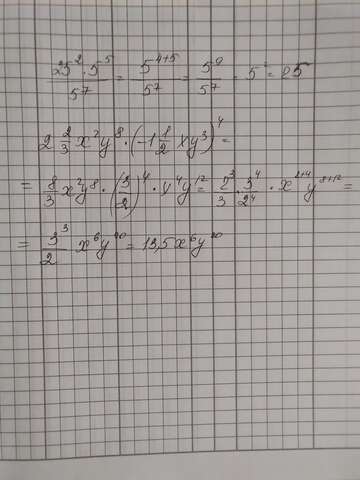 25²·5⁵/5⁷ = 5⁴⁺⁵/5⁷ = 5⁹/5⁷ = 5² = 25
2 2/3 x²y⁸·(-1 1/2 xy³)⁴ =
= 8/3 x²y⁸·(3/2)⁴·x⁴y¹² = 2³/3·3⁴/2⁴·x²⁺⁴y⁸⁺¹² =
= 3³/2 x⁶y²⁰ = 13,5x⁶y²⁰